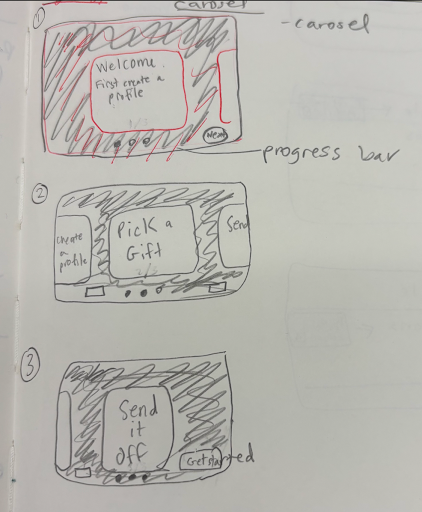 carosel
-carosel
①
Welcome.
First create a
profile
Next
progress bar
②
create
a
profile
Pick a
Gift
Send
③
Send
it
off
Get started